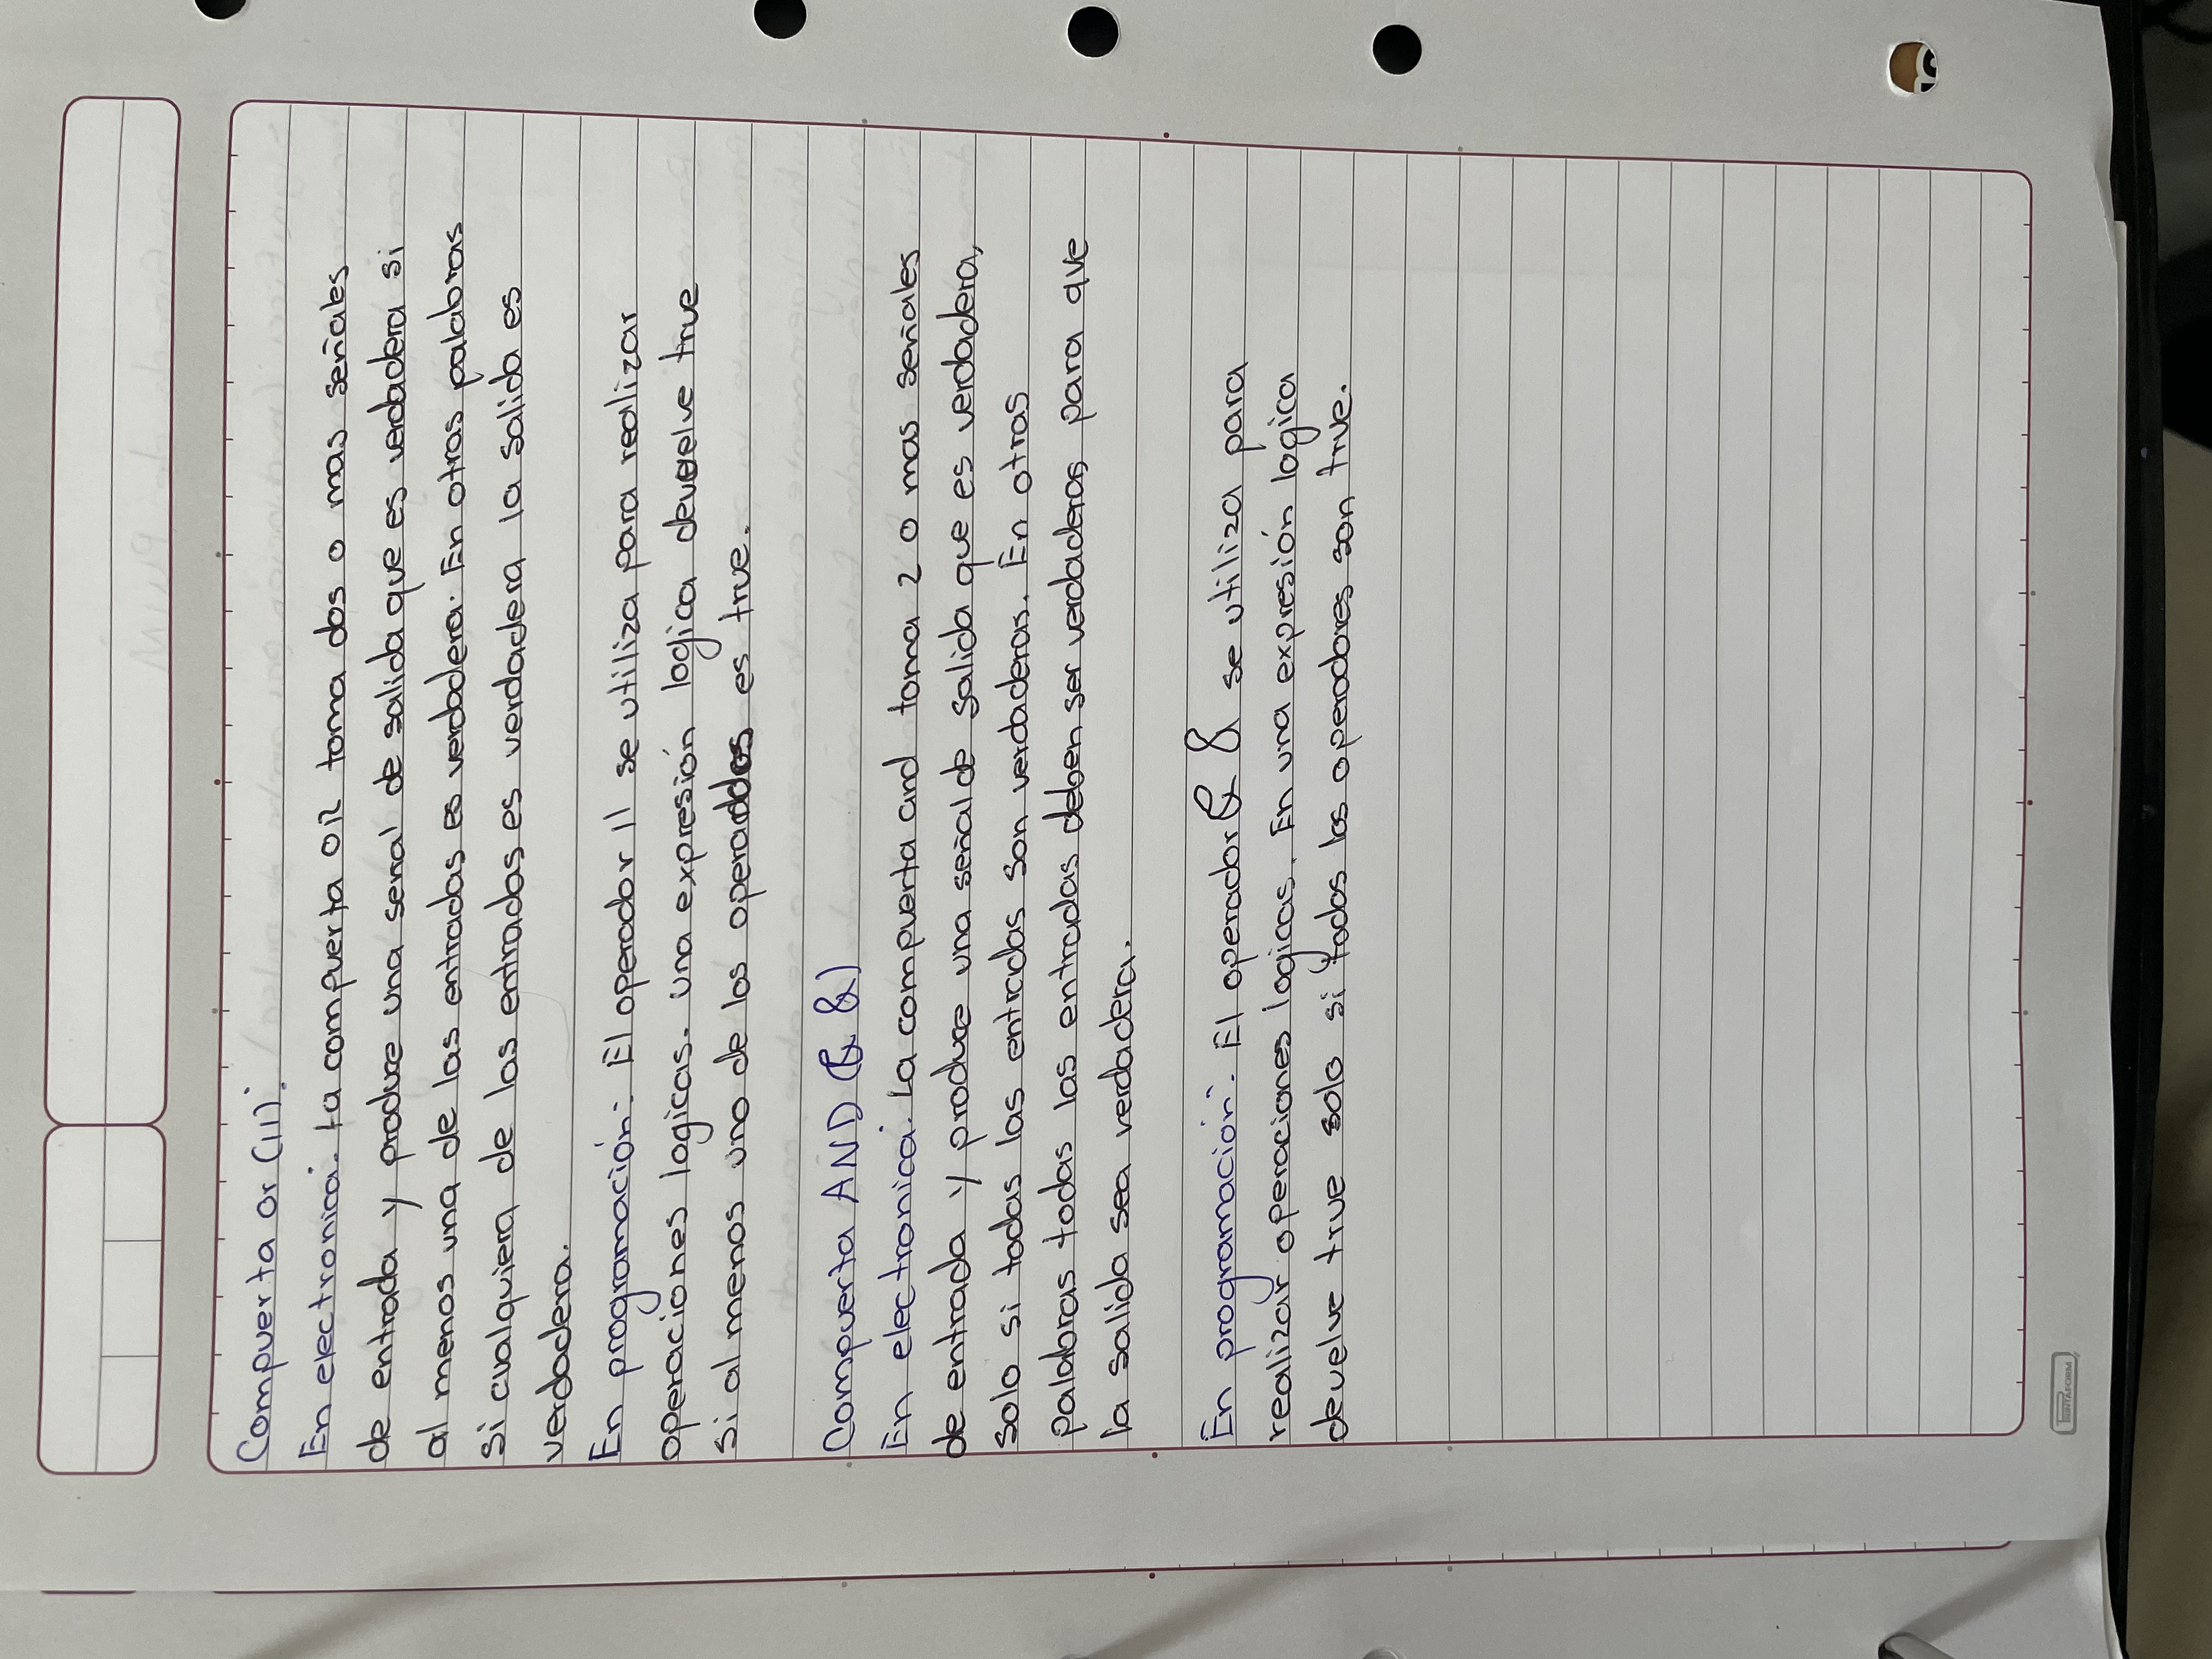 Compuerta or (||).
En electronica. La compuerta OR toma dos o mas señales
de entrada y produce una señal de salida que es verdadera si
al menos una de las entradas es verdadera. En otras palabras
si cualquiera de las entradas es verdadera la salida es
verdadera.
En programación: El operador || se utiliza para realizar
operaciones logicas. una expresión logica devuelve true
si al menos uno de los operaddos es true.
Compuerta AND (& &)
En electronica. La compuerta and toma 2 o mas señales
de entrada y produce una señal de salida que es verdadera,
solo si todas las entradas son verdaderas. En otras
palabras todas las entradas deben ser verdaderas para que
la salida sea verdadera.
En programación: El operador & & se utiliza para
realizar operaciones logicas. En una expresión logica
devuelve true solo si todos los operadores son true.
PRINTAFORM